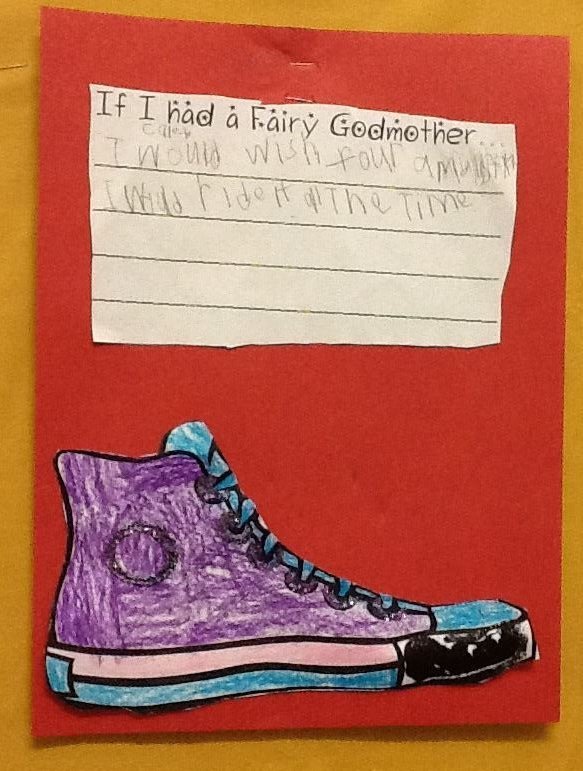 If I had a Fairy Godmother...
Caleb
I would wish four a
I wild ride it all The Time